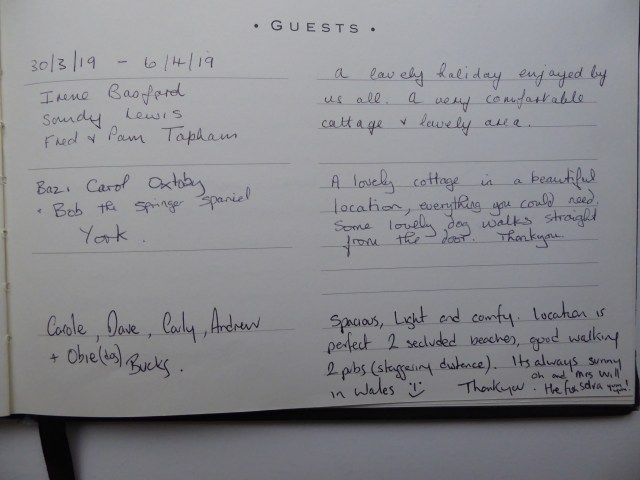 • GUESTS •
30/3/19 - 6/4/19
Irene Basford
Sandy Lewis
Fred & Pam Tapham
A lovely holiday enjoyed by
us all. A very comfortable
cottage & lovely area.
Baz, Carol Oxtoby
+ Bob the Springer Spaniel
York.
A lovely cottage in a beautiful
location, everything you could need.
Some lovely dog walks straight
from the door. Thankyou
Carole, Dave, Carly, Andrew
+ Obie (dog) Bucks.
Spacious, Light and comfy. Location is
perfect 2 secluded beaches, good walking
2 pubs (staggering distance). Its always sunny
in Wales Thankyou. oh and mrs Will
the fur solva